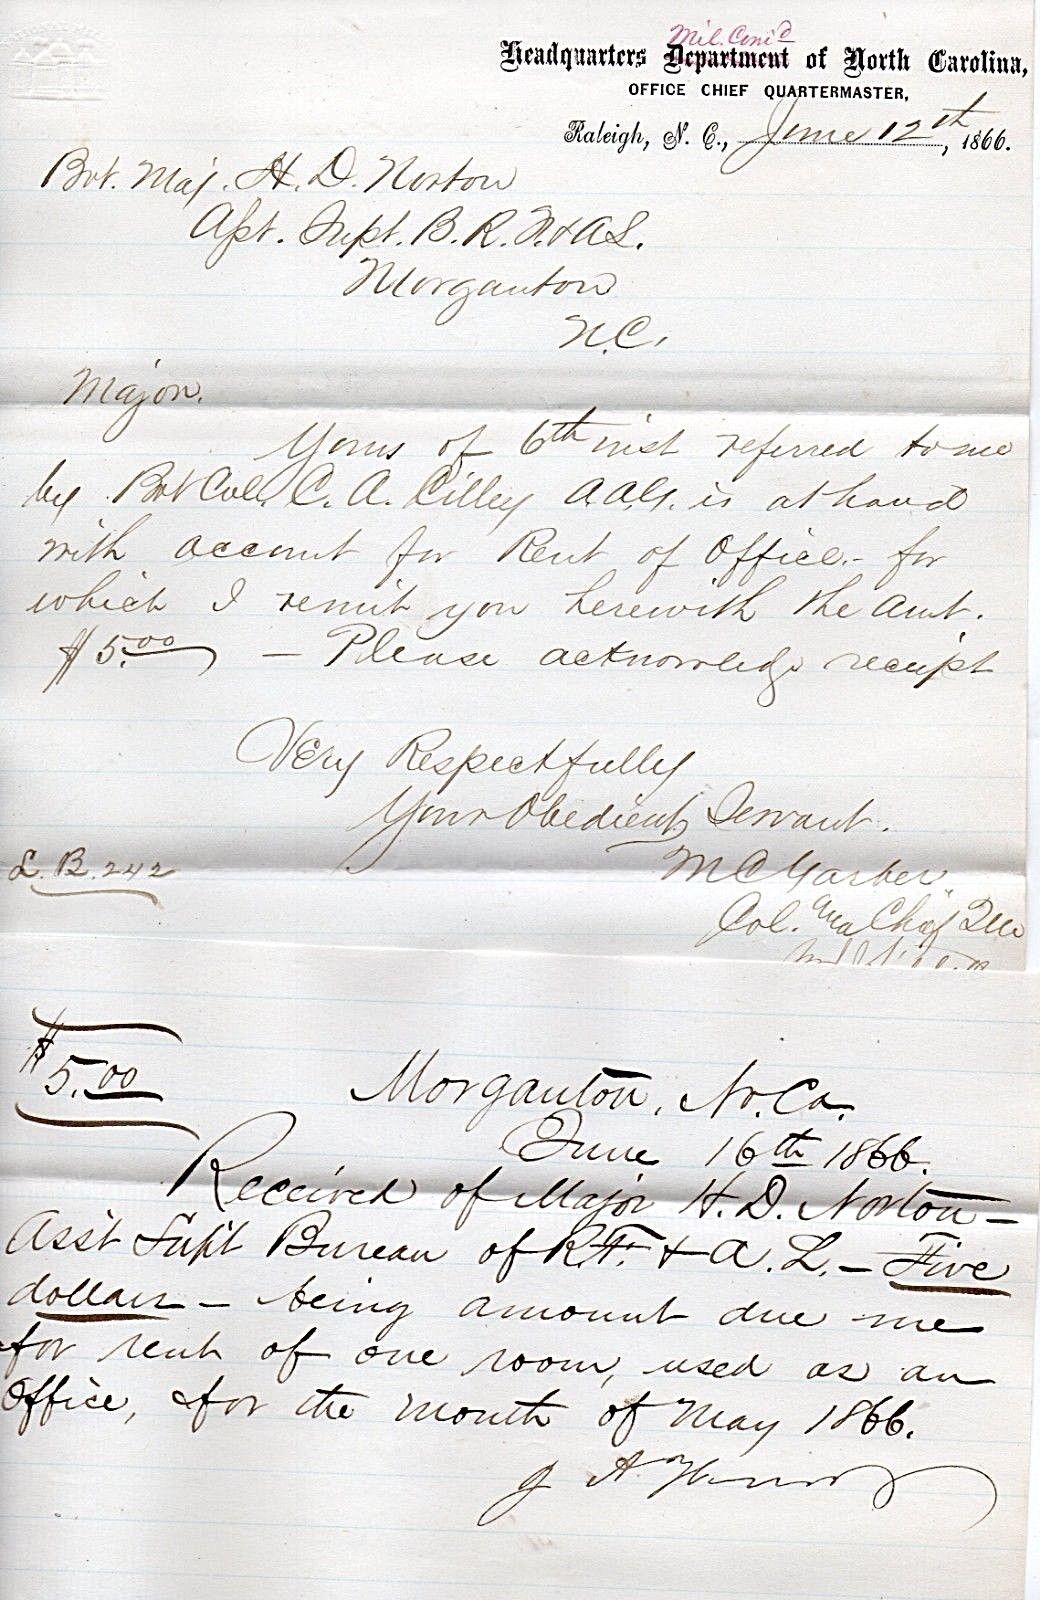 Mil. Com'd
Headquarters Department of North Carolina,
OFFICE CHIEF QUARTERMASTER,
Raleigh, N. C., June 12th, 1866.
Bvt. Maj. H. D. Norton
Asst. Supt. B. R. F. & A L.
Morganton
N.C.
Major.
Yours of 6th inst referred to me
by Bvt Col. C. A. Cilley A.A.G. is at hand
with account for Rent of Office.- for
which I remit you herewith the amt.
$5.00 — Please acknowledge receipt
Very Respectfully
Your Obedient Servant.
M C Garber
L. B. 242
Col. Chief QM
$5.00
Morganton, No. Ca.
June 16th 1866.
Received of Major H. D. Norton —
Asst Supt Bureau of R. F. & A. L. — Five
dollars — being amount due me
for rent of one room, used as an
Office, for the month of May 1866.
J A